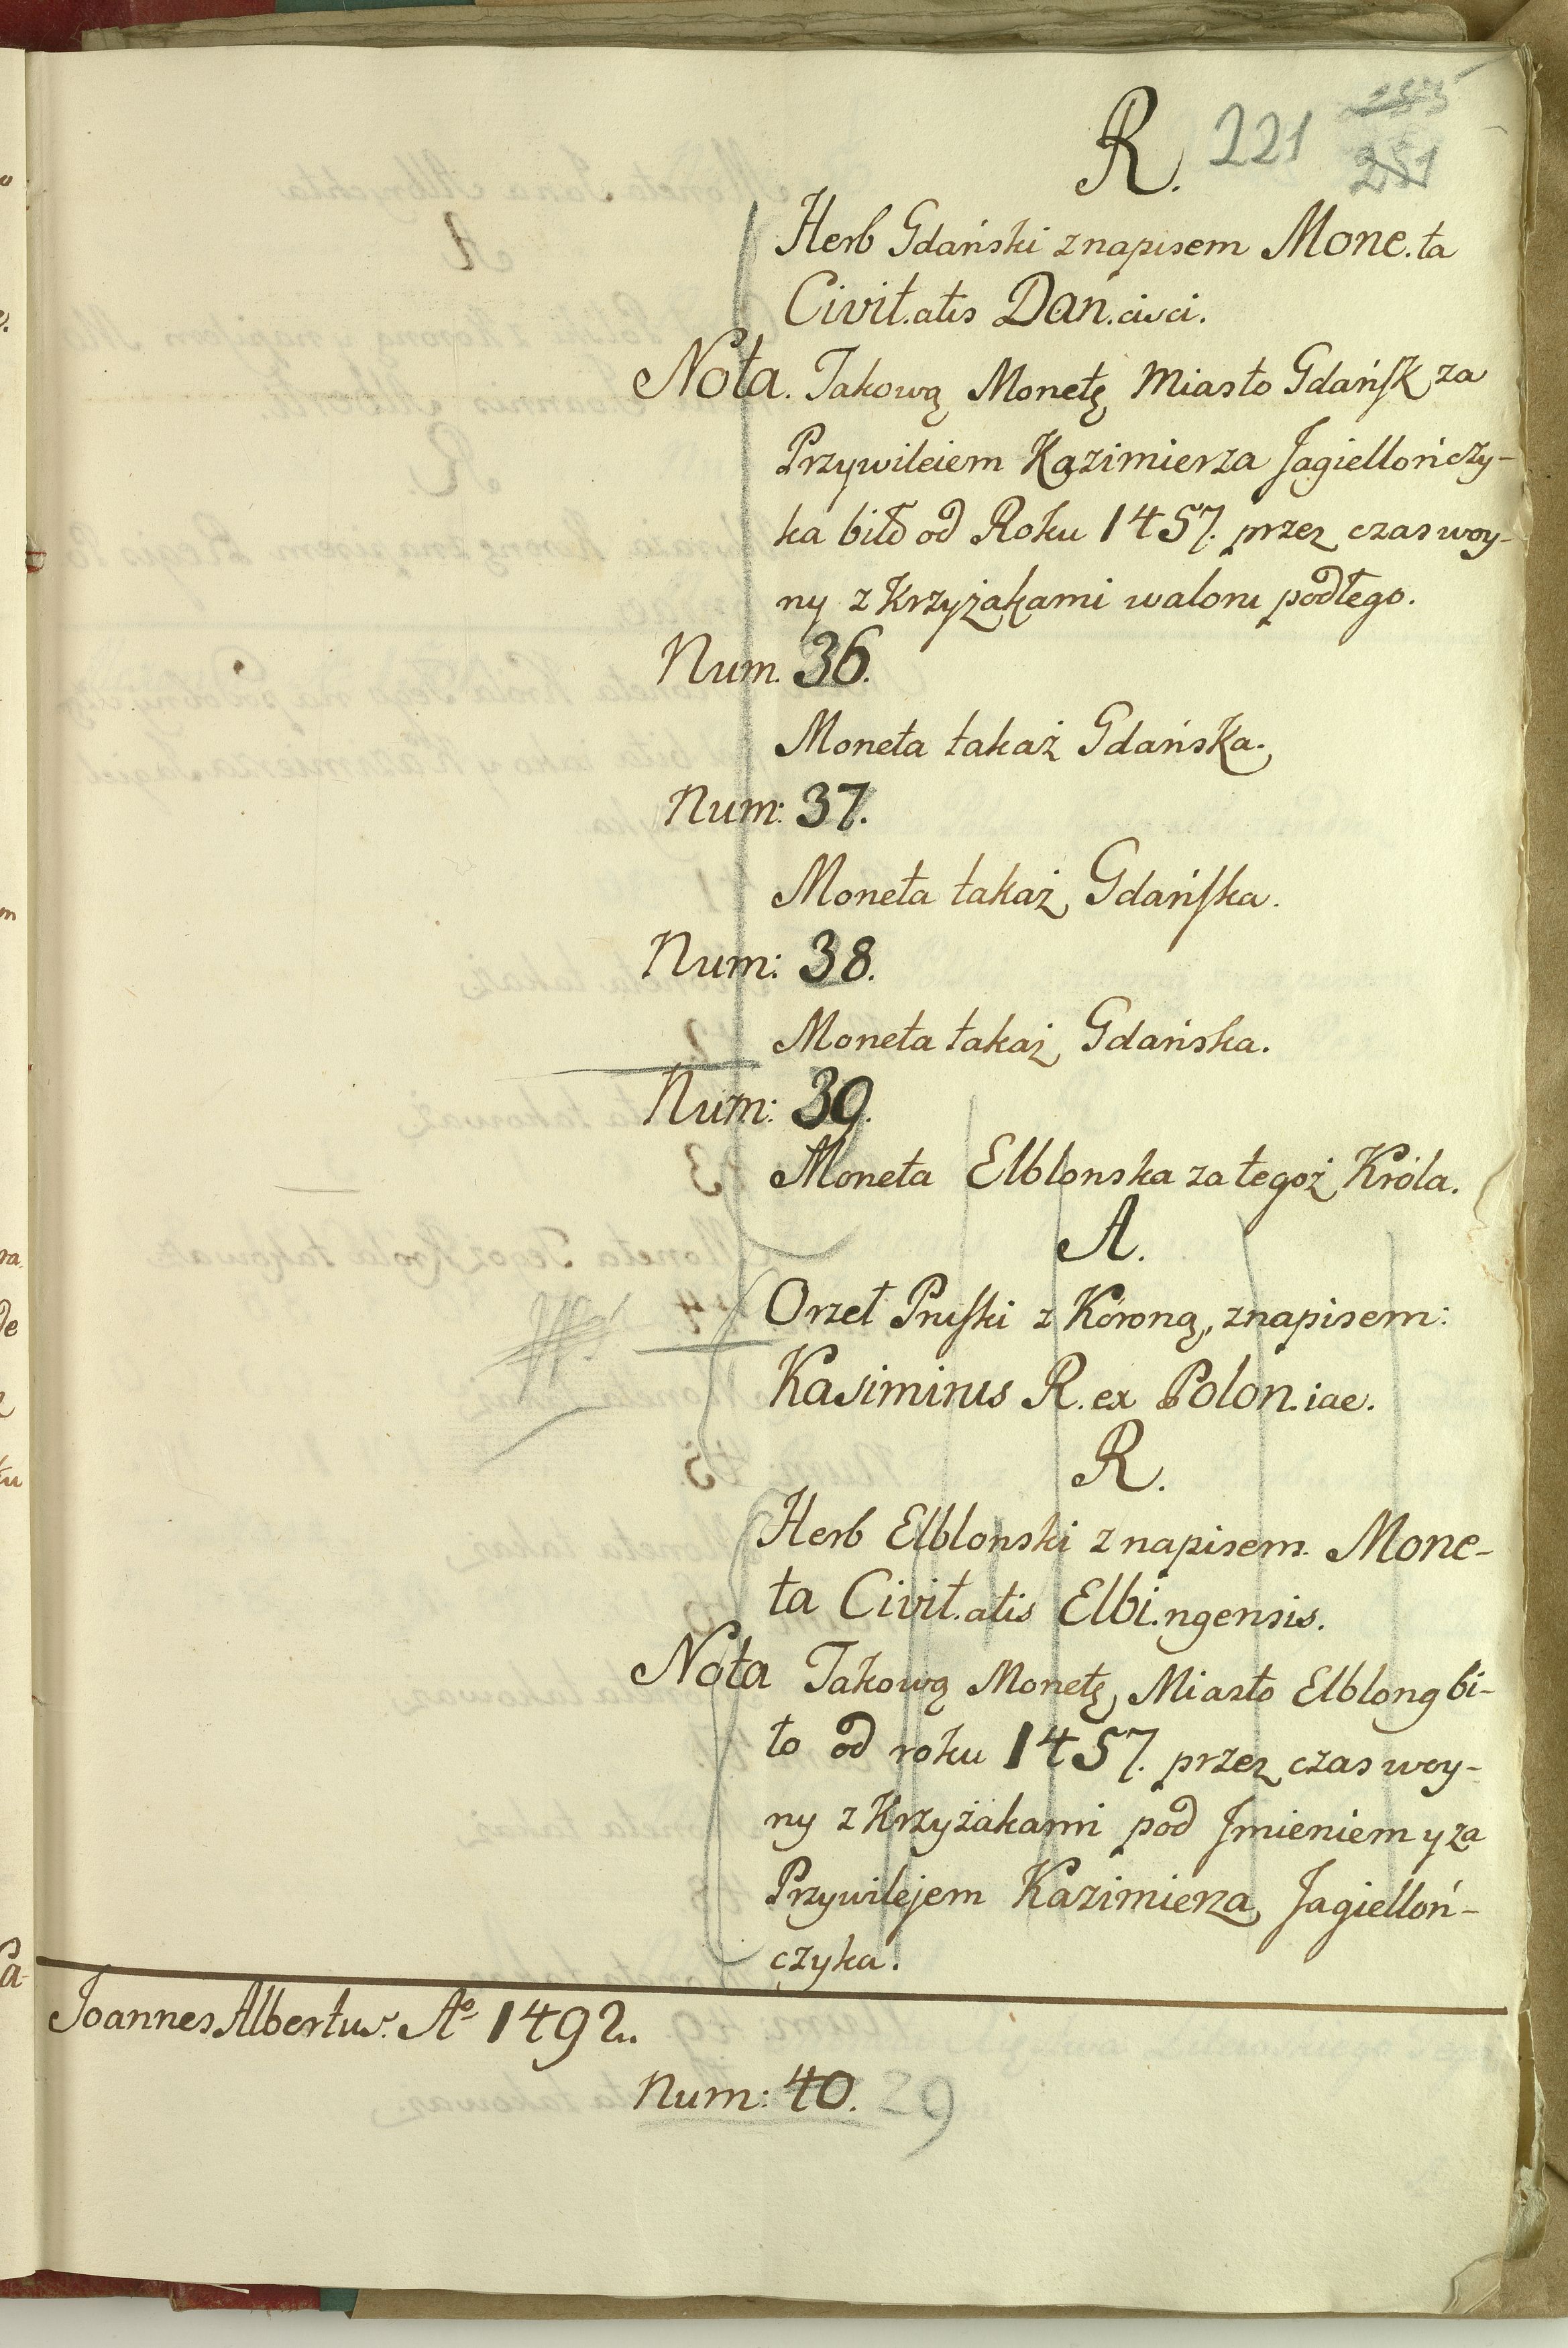 R. 221
251
Herb Gdański z napisem Mone.ta
Civit.atis Dan.cisci.
Nota. Takową Monetę Miasto Gdańsk za
Przywileiem Kazimierza Jagiellończy-
ka biło od Roku 1457. przez czas woy-
ny z Krzyżakami waloru podłego.
Num. 36.
Moneta takaż Gdańska.
Num: 37.
Moneta takaż Gdańska.
Num: 38.
Moneta takaż Gdańska.
Num: 39.
Moneta Elblonska za tegoż Króla.
A.
Orzeł Pruski z Koroną, z napisem:
Kasimirus R.ex Polon.iae.
R.
Herb Elblonski z napisem. Mone-
ta Civit.atis Elbi.ngensis.
Nota Takową Monetę Miasto Elblong bi-
ło od roku 1457. przez czas woy-
ny z Krzyżakami pod Jmieniem y za
Przywilejem Kazimierza Jagielloń-
czyka.
Joannes Albertus. Aº 1492.
Num: 40. 29